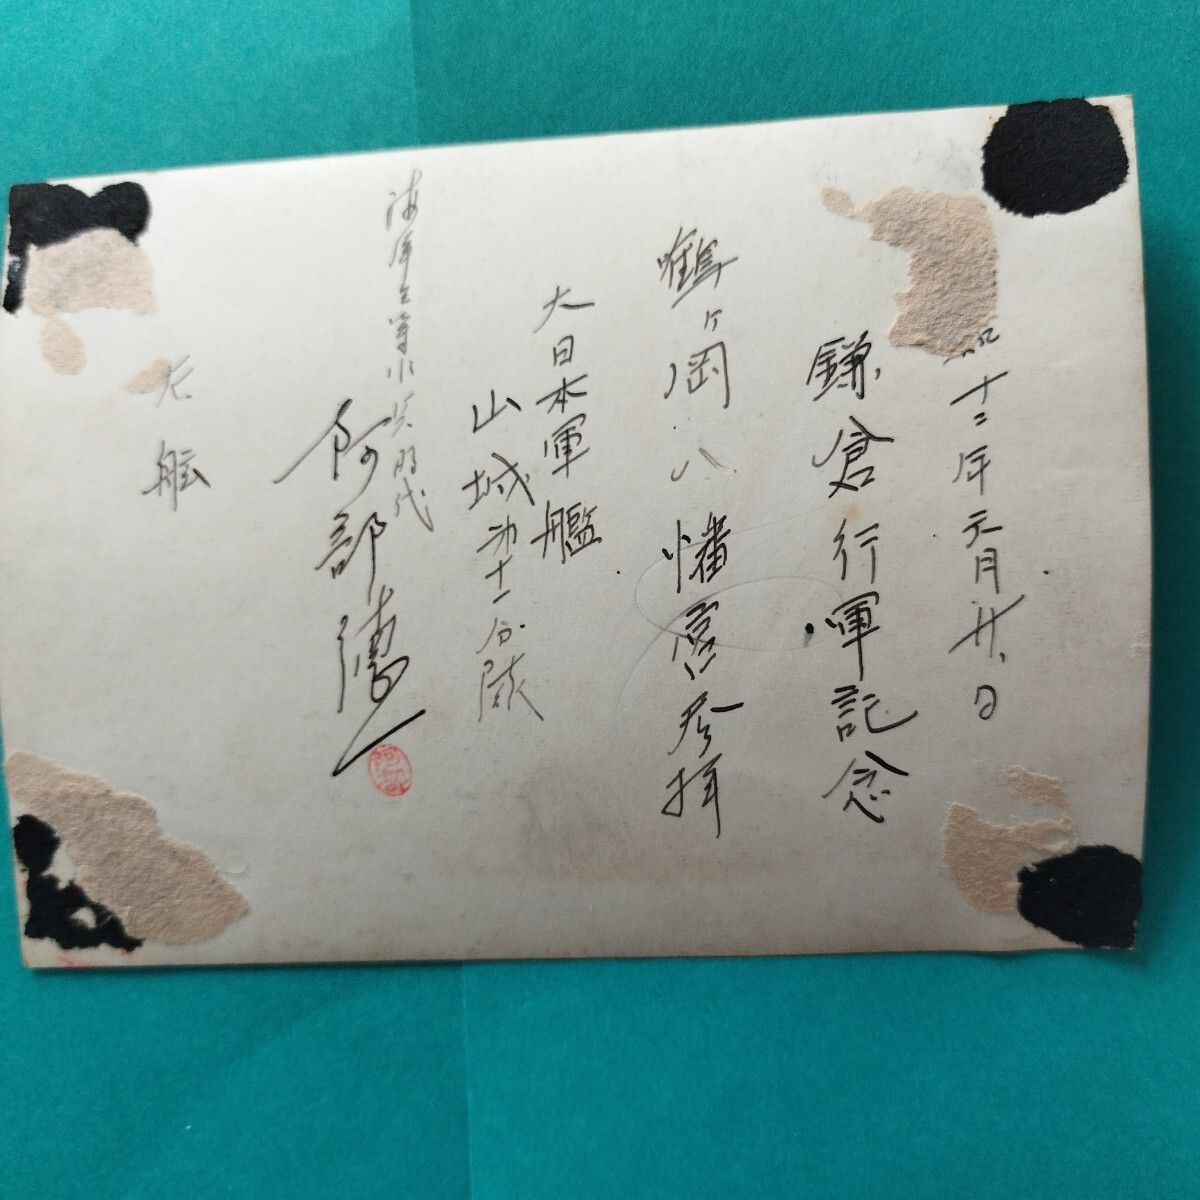 十二年元月廿日
鎌倉行軍記念
鶴ヶ岡八幡宮参拝
大日本軍艦
山城第十一分隊
海軍三等水兵時代
阿部憲一
左舷